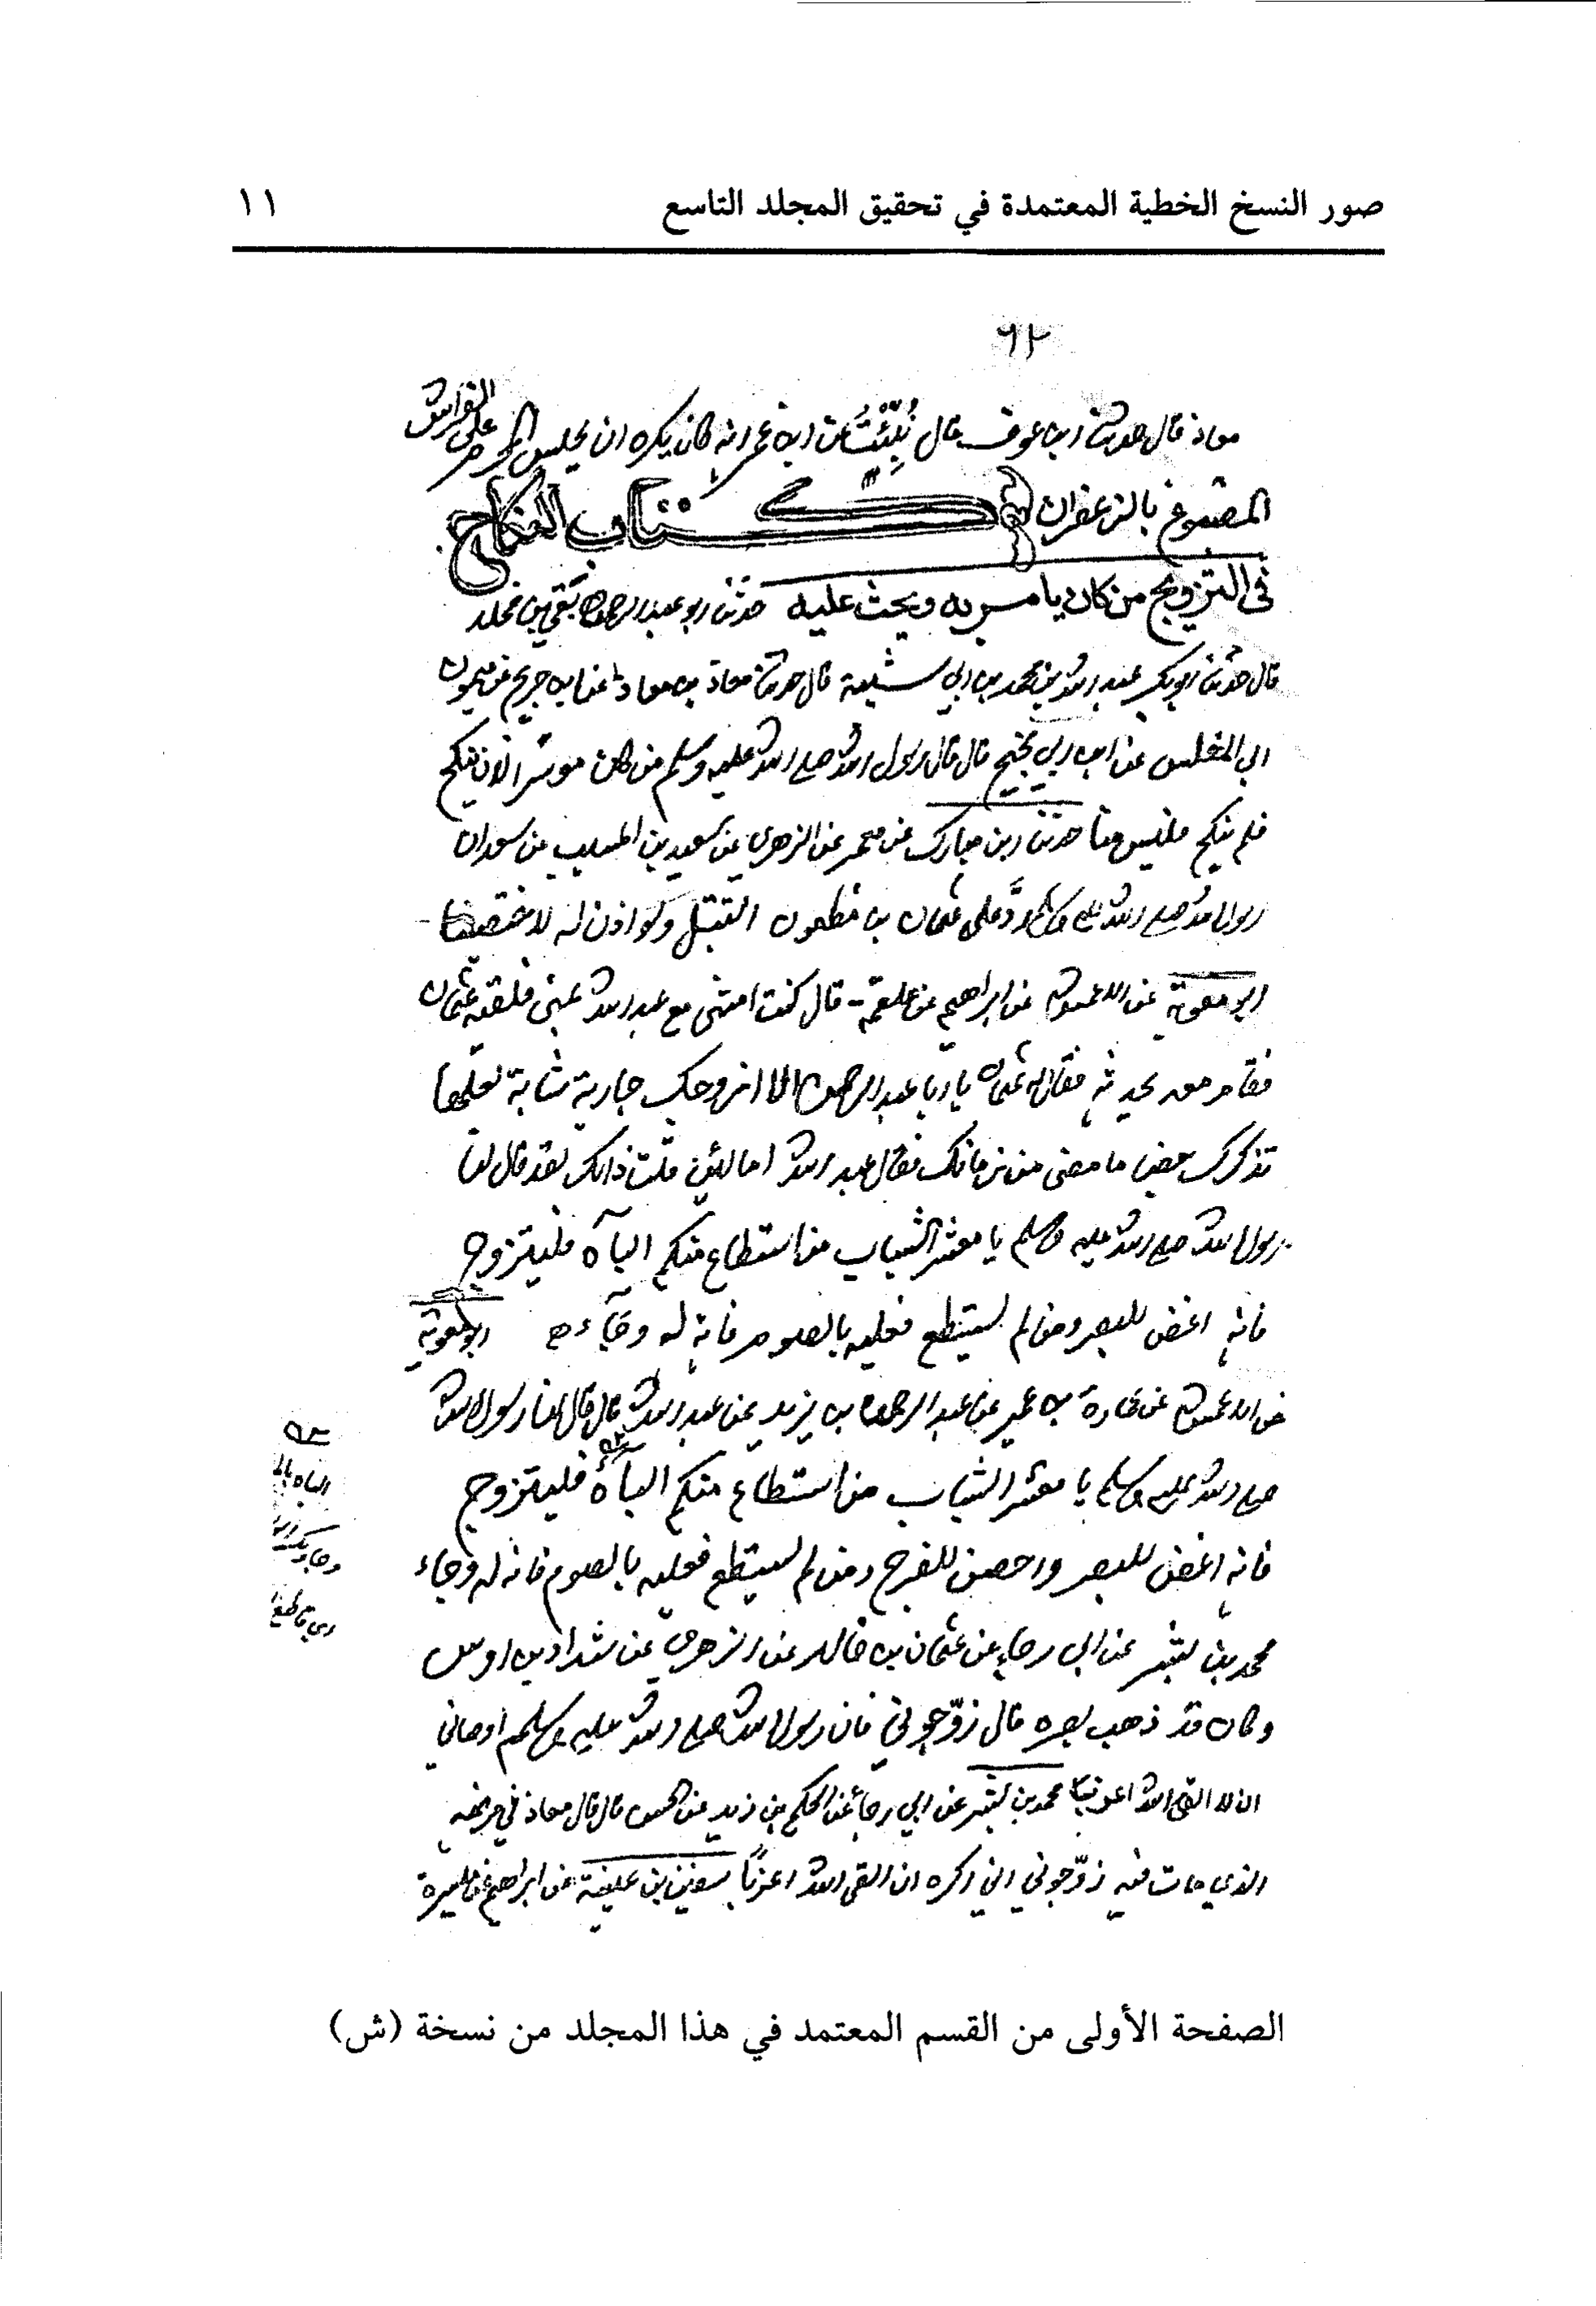 صور النسخ الخطية المعتمدة في تحقيق المجلد التاسع ١١
٦٢
معاذ قال حدثنا ابن عوف قال نُبِّئْتُ عن ابن عمر انه كان يكره ان يجلس المحرم على الفراش
المصبوغ بالزعفران كتاب النكاح
في التزويج من كان يامر به ويحث عليه حدثنا ابو عبد الرحمن بقي بن مخلد
قال حدثنا ابو بكر عبد الله بن محمد بن ابي شيبة قال حدثنا معاذ بن معاذ عن ابن جريج عن ميمون
ابي المغلس عن ابن ابي نجيح قال قال رسول الله صلى الله عليه وسلم من كان موسرا لان ينكح
فلم ينكح فليس منا حدثنا ابن مبارك عن معمر عن الزهري عن سعيد بن المسيب عن سعد ان
رسول الله صلى الله عليه وسلم ردَّ على عثمان بن مظعون التبتل ولو اذن له لاختصينا
ابو معوية عن الاعمش عن ابراهيم عن علقمة قال كنت امشي مع عبد الله بمنى فلقيه عثمان
فقام معه يحدثه فقال له عثمان يا ابا عبد الرحمن الا ازوجك جارية شابة لعلها
تذكرك بعض ما مضى من زمانك فقال عبد الله اما لئن قلت ذالك لقد قال لنا
رسول الله صلى الله عليه وسلم يا معشر الشباب من استطاع منكم البآه فليتزوج
فانه اغض للبصر ومن لم يستطع فعليه بالصوم فانه له وجآء ابو معوية
عن الاعمش عن عمارة بن عمير عن عبد الرحمن بن يزيد عن عبد الله قال قال لنا رسول الله
صلى الله عليه وسلم يا معشر الشباب من استطاع منكم البآه فليتزوج
فانه اغض للبصر واحصن للفرج ومن لم يستطع فعليه بالصوم فانه له وجاء
محمد بن بشر عن ابي رجاء عن عثمان بن خالد عن الزهري عن شداد بن اوس
وكان قد ذهب بصره قال زوّجوني فان رسول الله صلى الله عليه وسلم اوصاني
ان لا القى الله اعزبا محمد بن بشر عن ابي رجا عن الحكم بن زيد عن الحسن قال قال معاذ في مرضه
الذي مات فيه زوّجوني اني اكره ان القى الله اعزبًا سفين بن عيينة عن ابراهيم بن ميسرة
الصفحة الأولى من القسم المعتمد في هذا المجلد من نسخة (ش)